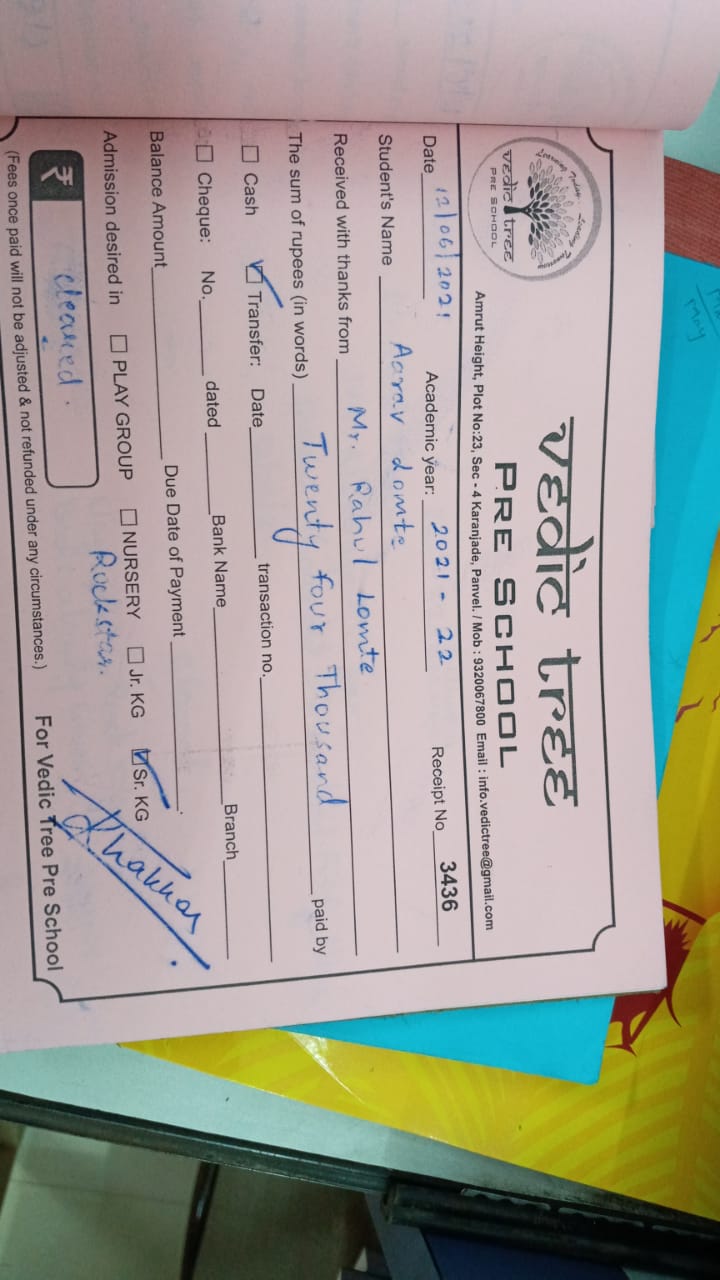 Learning Today... Leading Tomorrow
vedic tree
PRE SCHOOL
vedic tree
PRE SCHOOL
Amrut Height, Plot No:23, Sec - 4 Karanjade, Panvel. / Mob : 9320067800 Email : info.vedictree@gmail.com
Date 12/06/2021 Academic year: 2021 - 22 Receipt No 3436
Student's Name Aarav Lomte
Received with thanks from Mr. Rahul Lomte
The sum of rupees (in words) Twenty four Thousand paid by
Cash Transfer: Date transaction no.
Cheque: No. dated Bank Name Branch
Balance Amount Due Date of Payment
Admission desired in PLAY GROUP NURSERY Jr. KG Sr. KG
Rockstar.
₹ cleared.
(Fees once paid will not be adjusted & not refunded under any circumstances.)
For Vedic Tree Pre School
may